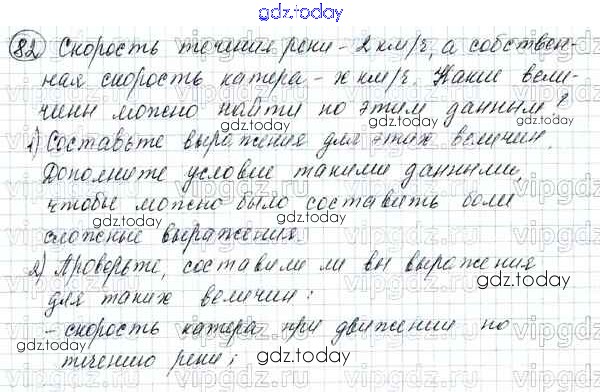 gdz.today
82 Скорость течения реки - 2 км/ч, а собствен-
ная скорость катера - x км/ч. Какие вели-
gdz.today
чины можно найти по этим данным?
gdz.today
1) Составьте выражения для этих величин.
gdz.today
Дополните условие такими данными,
чтобы можно было составить боле
gdz.today
сложные выражения.
2) Проверьте, составили ли вы выражения
gdz.today
для таких величин:
- скорость катера при движении по
gdz.today
течению реки;
gdz.today